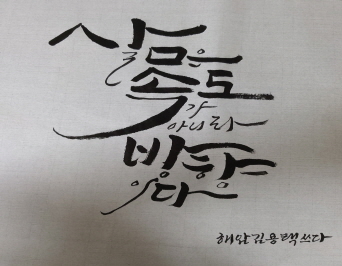 삶은
속도
가
아니라
방향
이다
김용택 쓰다